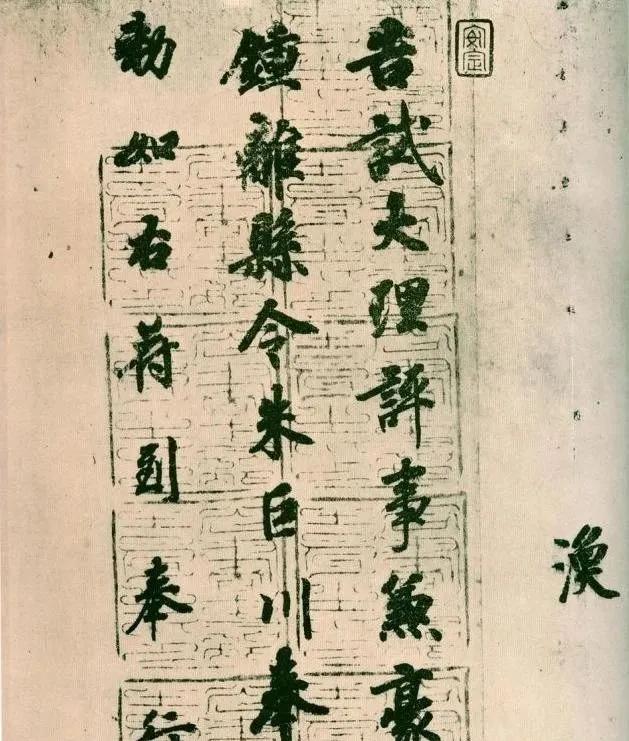 渙
告試大理評事兼豪
鍾離縣令朱巨川奉
勑如右苻到奉行